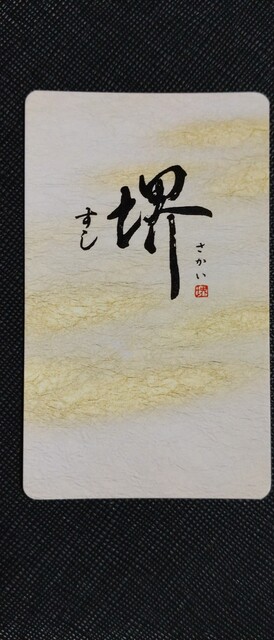 すし
堺
さかい
堺